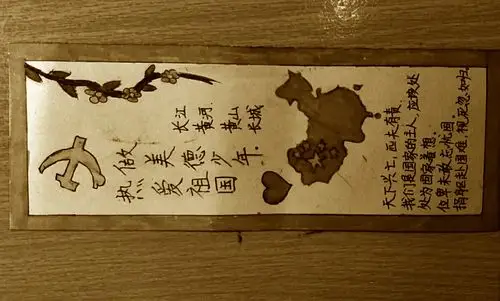 长江 黄河 黄山 长城
做美德少年.
热爱祖国
天下兴亡,匹夫有责.
我们是国家的主人,应该处
处为国家着想.
位卑未敢忘忧国
捐躯赴国难,视死忽如归.